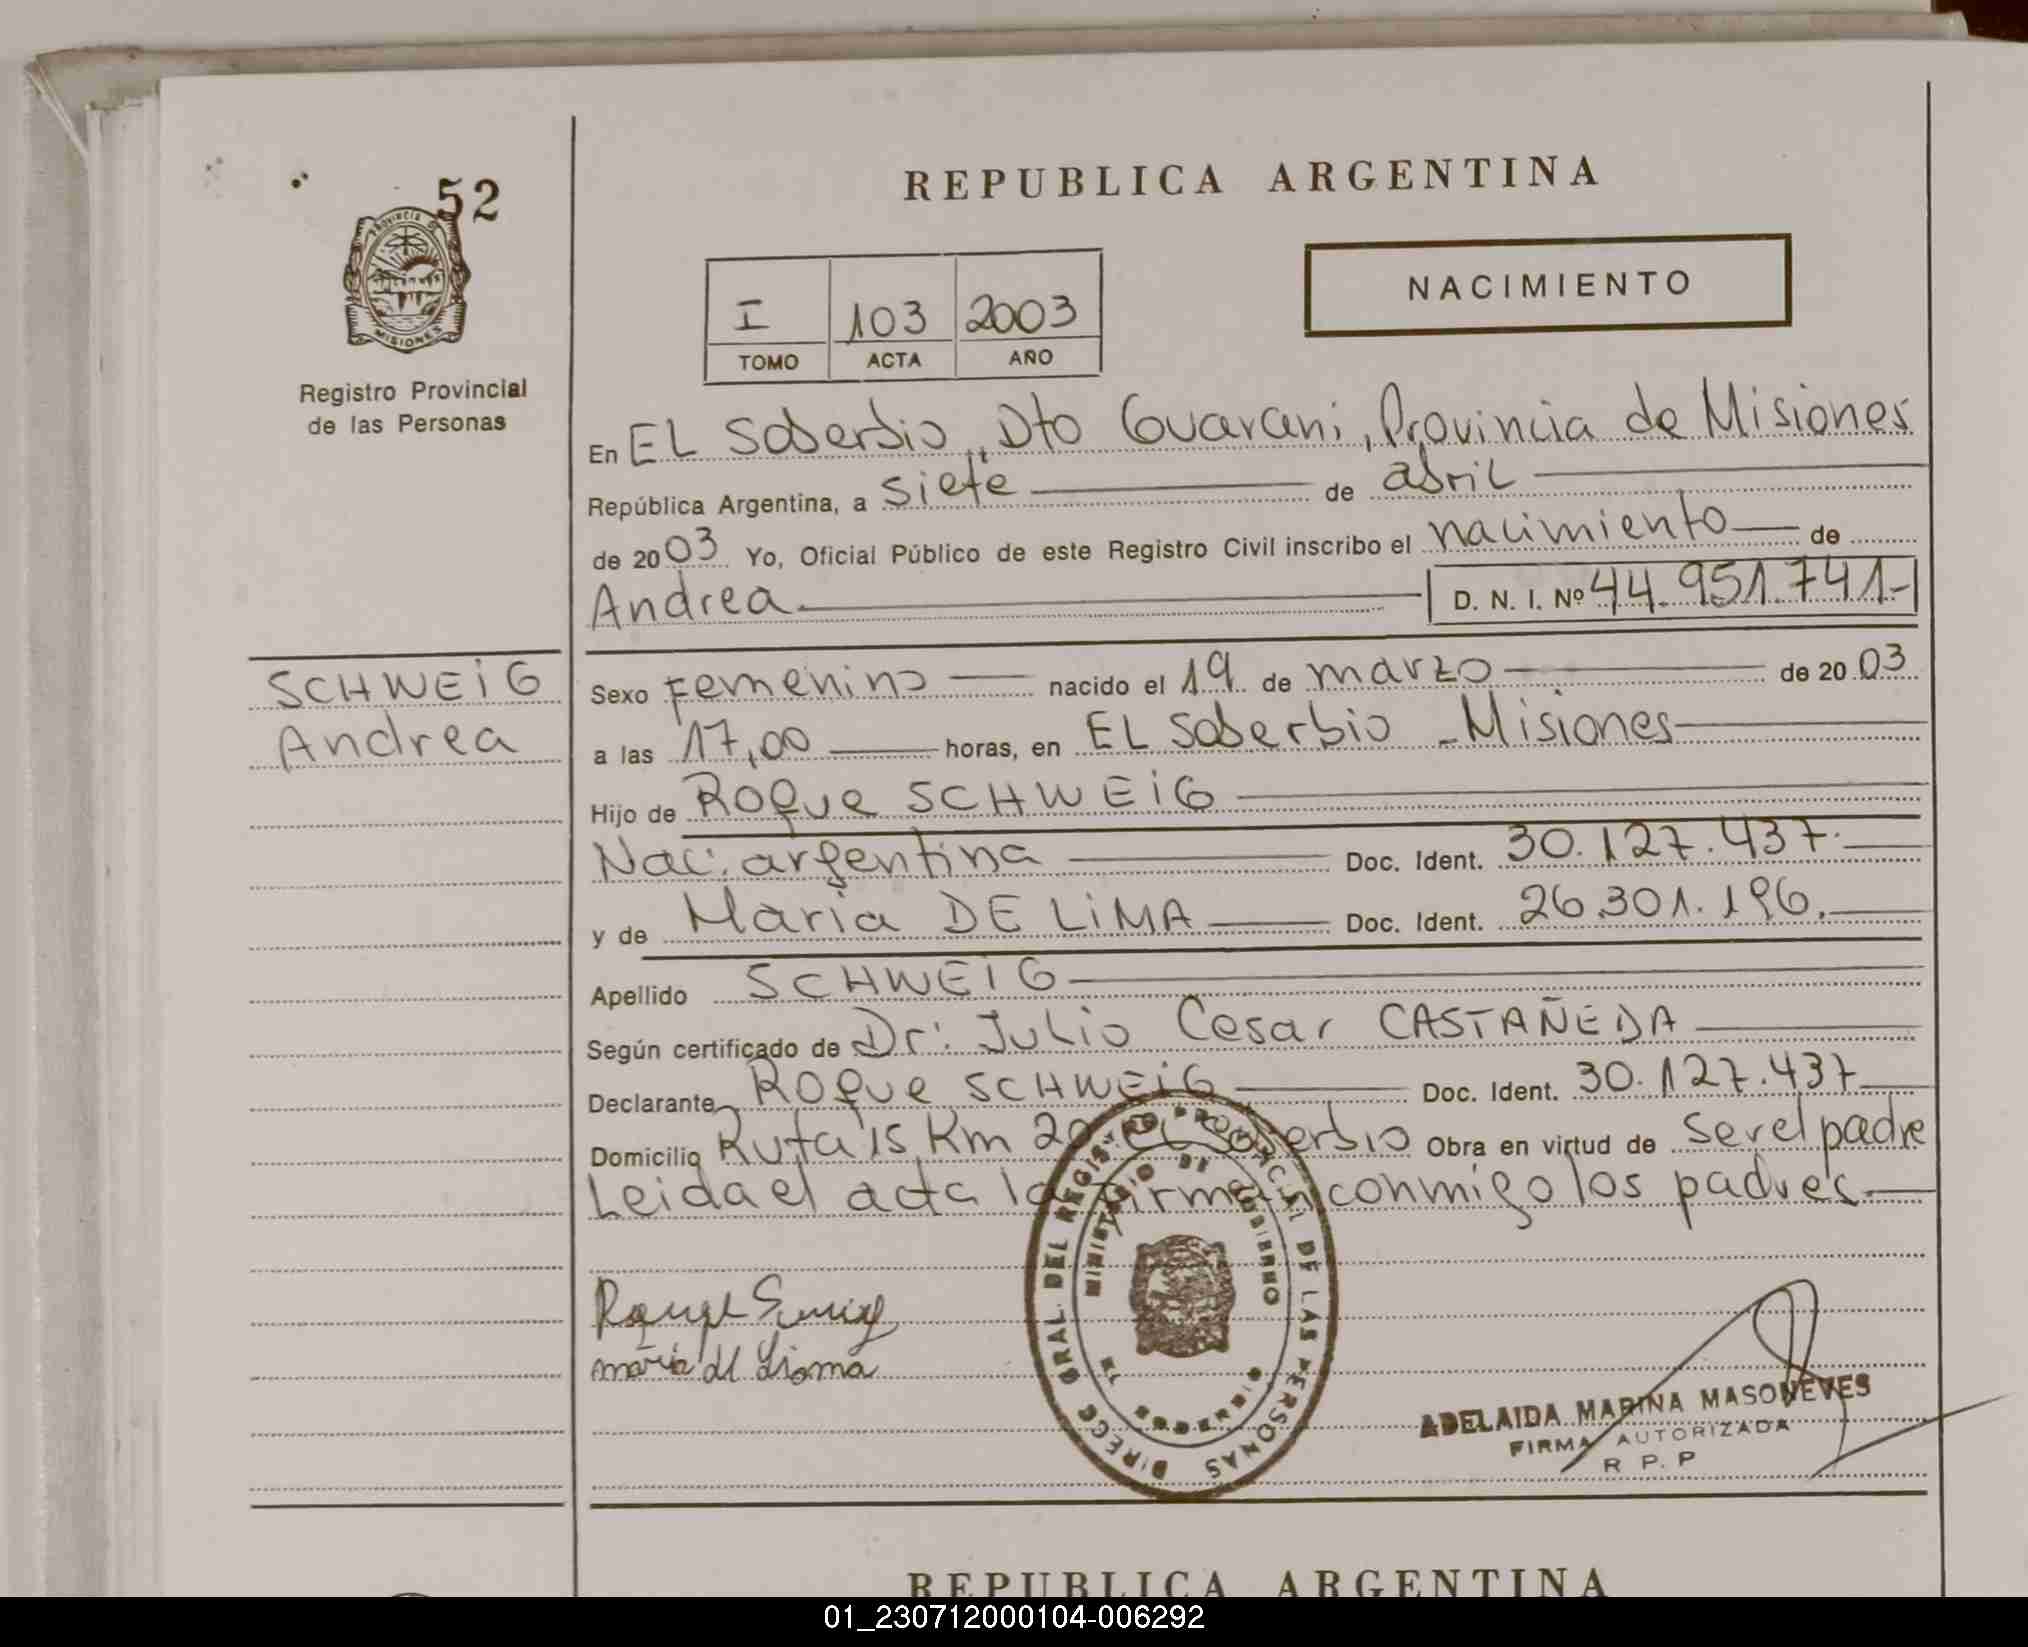 52
PROVINCIA DE
MISIONES
Registro Provincial
de las Personas
SCHWEIG
Andrea
REPUBLICA ARGENTINA
NACIMIENTO
I 103 2003
TOMO ACTA AÑO
En EL Soberbio, Dto Guarani, Provincia de Misiones
República Argentina, a siete de abril
de 2003 Yo, Oficial Público de este Registro Civil inscribo el nacimiento de
Andrea D. N. I. Nº 44.951.741-
Sexo Femenino nacido el 19 de marzo de 2003
a las 17,00 horas, en EL Soberbio - Misiones
Hijo de Roque SCHWEIG
Nac: argentina Doc. Ident. 30.127.437.
y de Maria DE LiMA Doc. Ident. 26.301.196.
Apellido SCHWEIG
Según certificado de Dr: Julio Cesar CASTAÑEDA
Declarante Roque SCHWEIG Doc. Ident. 30.127.437
Domicilio Ruta 15 Km 20 El Soberbio Obra en virtud de ser el padre
Leida el acta la firman conmigo los padres
DIRECC GRAL. DEL REGISTRO PROVINCIAL DE LAS PERSONAS
MINISTERIO DE GOBIERNO
MISIONES
maria de Lioma
ADELAIDA MARINA MASONEVES
FIRMA AUTORIZADA
R P. P
REPUBLICA ARGENTINA
01_230712000104-006292